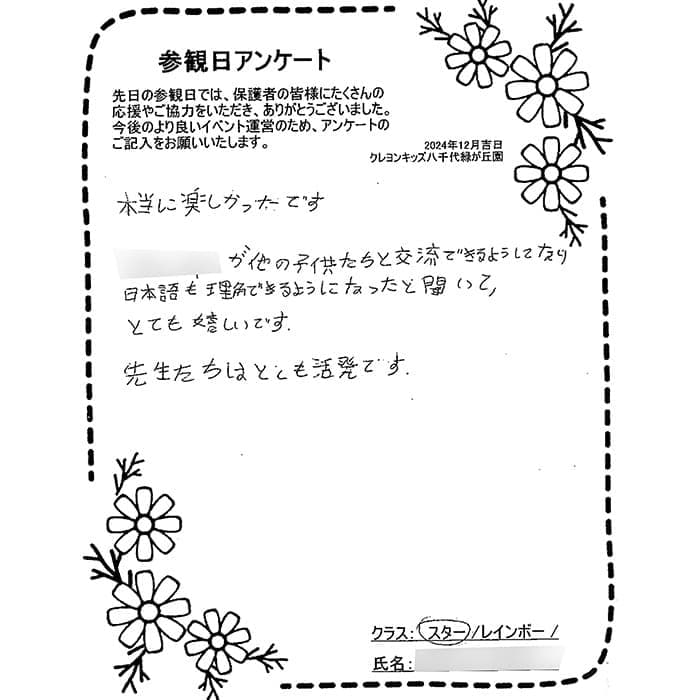 参観日アンケート
先日の参観日では、保護者の皆様にたくさんの
応援やご協力をいただき、ありがとうございました。
今後のより良いイベント運営のため、アンケートの
ご記入をお願いいたします。
2024年12月吉日
クレヨンキッズ八千代緑が丘園
本当に楽しかったです
が他の子供たちと交流できるようしてなり
日本語も理解できるようになったと聞いて、
とても嬉しいです.
先生たちはとても活発です.
クラス: スター/レインボー /
氏名: